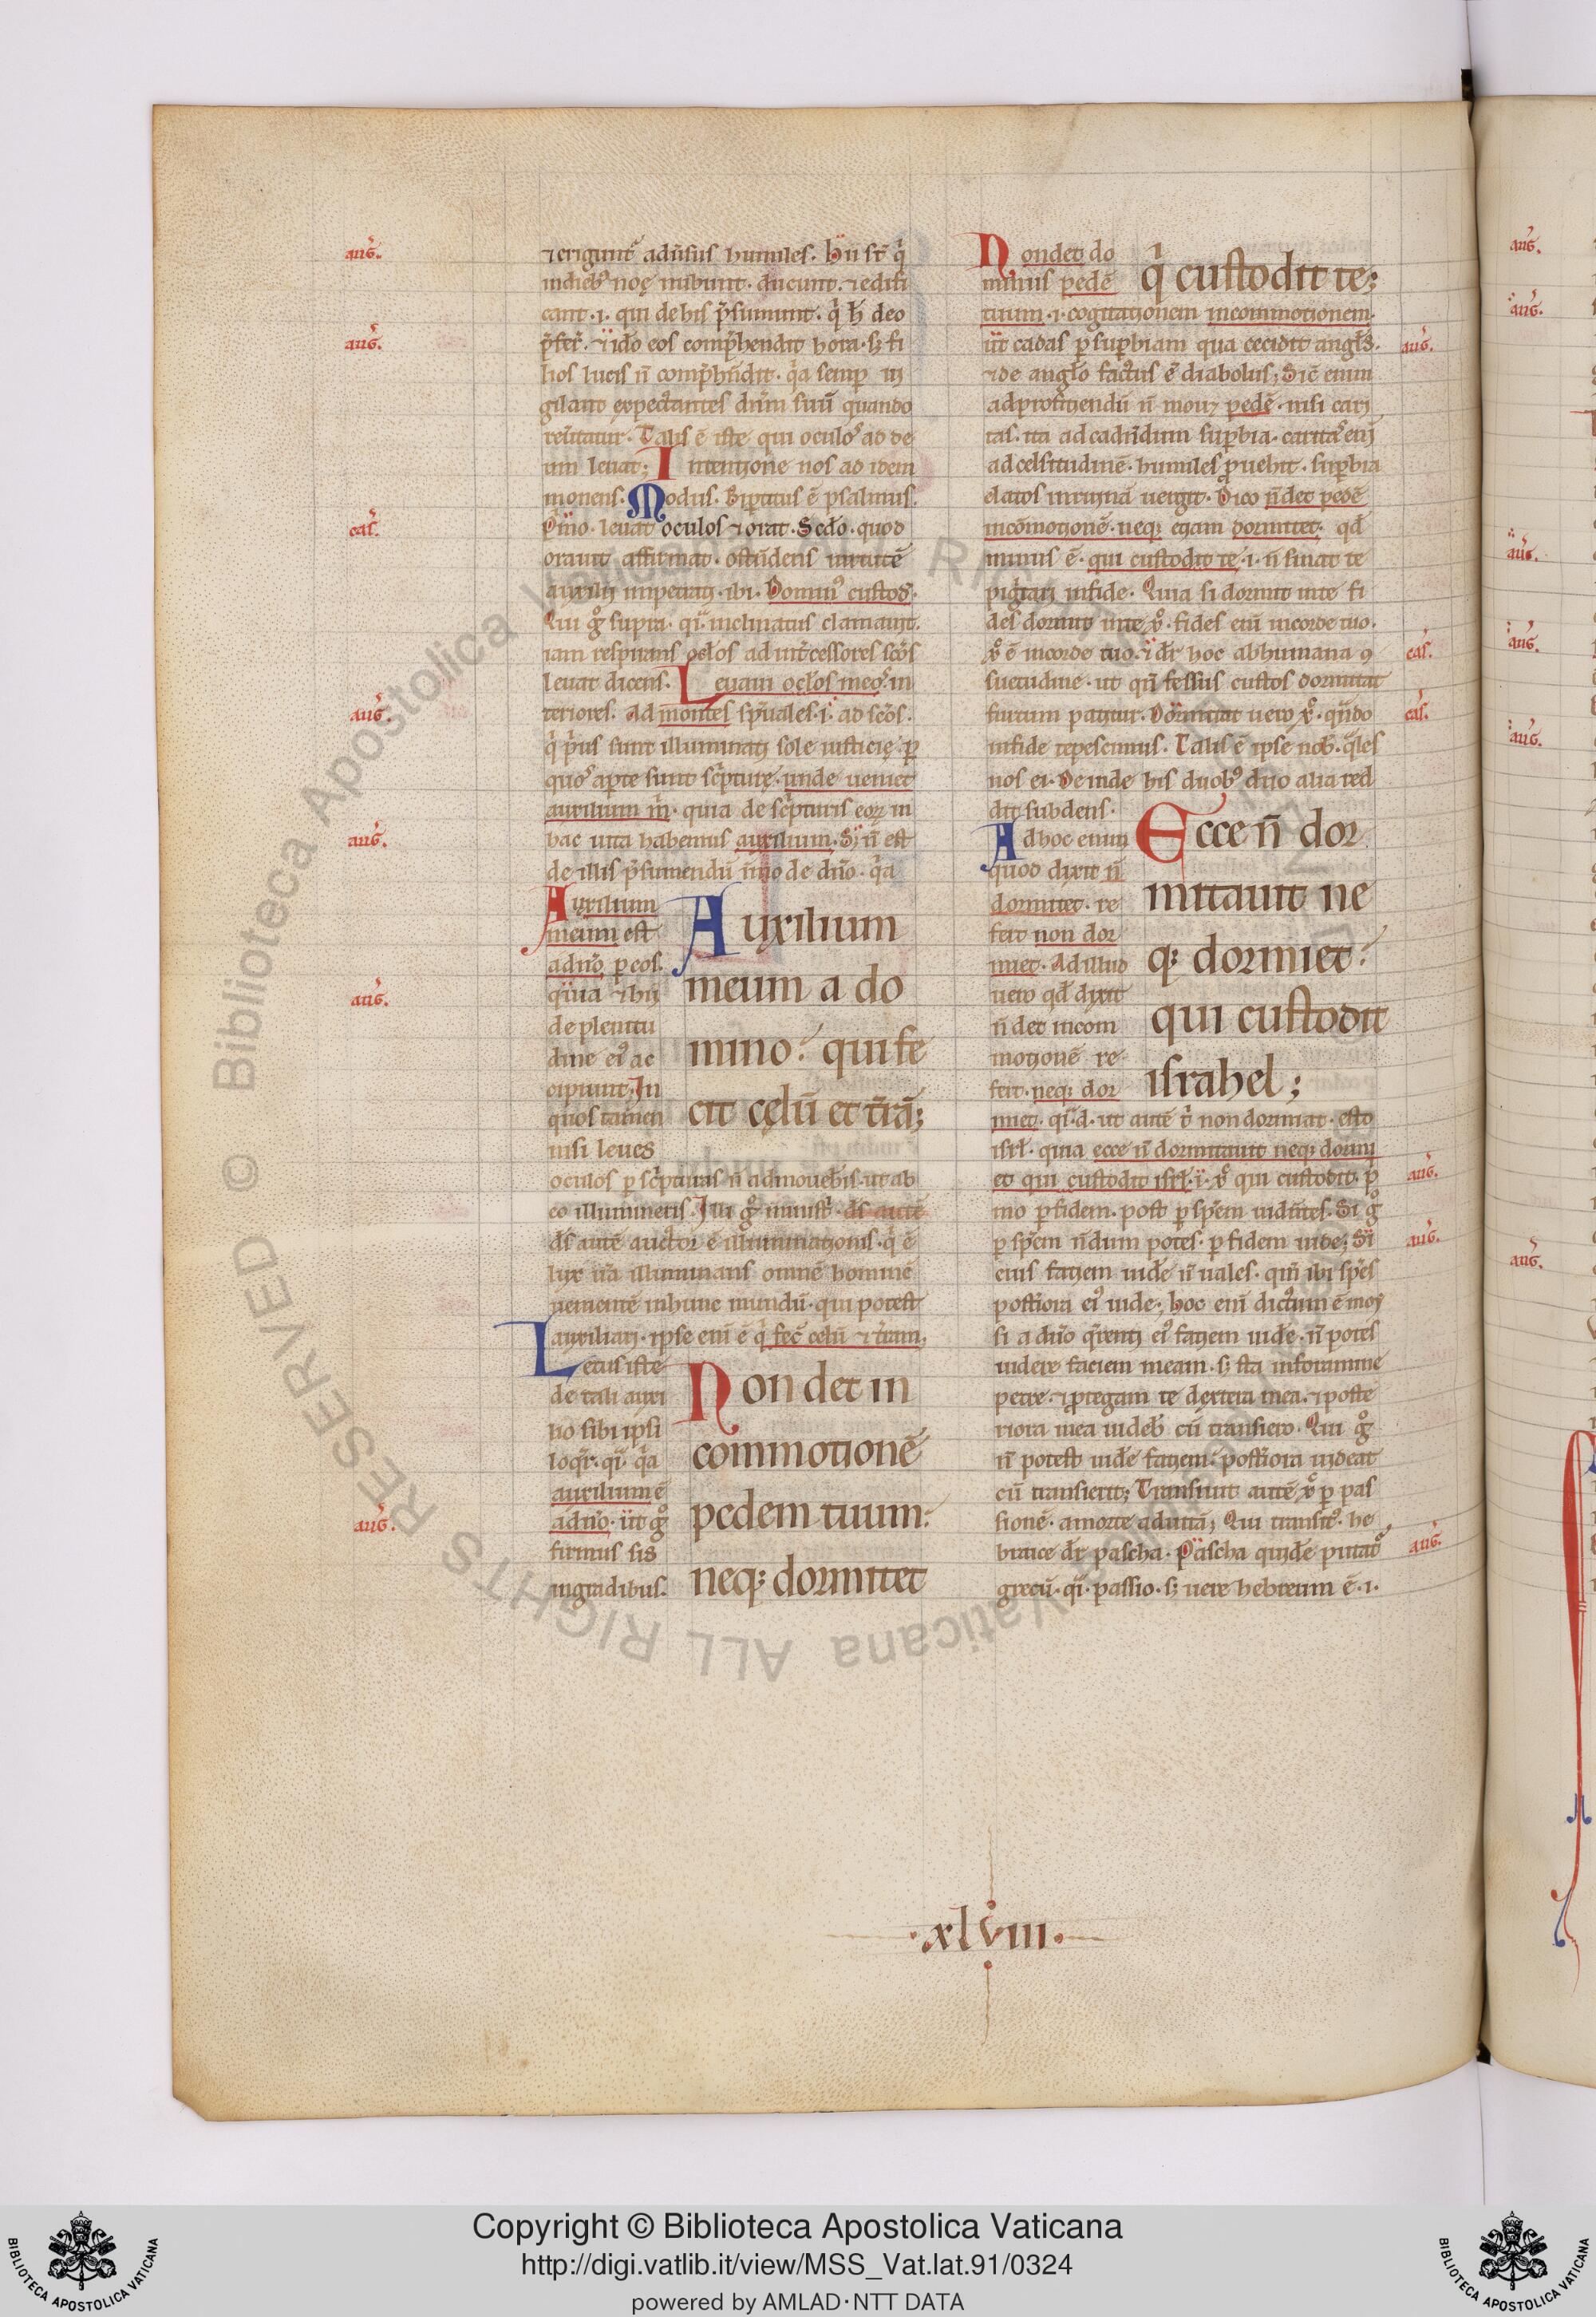 ⁊ erigunt᷑ adũsus humiles. hii st̃ q̇
indieb᷒ noę nubunt. ducunt. ⁊ edifi
cant .i. qui de his p̃sumunt. q̇ h̃ deo
p̃fer̃. ⁊ iđo eos comp̃hendit hora. sꝫ fi
lios lucis ñ comp̃hñdit. q̃a semꝑ ui
gilant expectantes dñm suũ quando
reũtatur. Talis ẽ iste qui oculo᷒ ad de
um leuat; Intentione nos ad idem
monens. Modus. Biꝑtitus ẽ psalmus.
P̃mo leuat oculos ⁊ orat. Scđo. quod
orauit affirmat. ostũdens uirtutẽ
auxilii impetrati. ibi. Domin᷒ custod̃.
Qui g̊ supra. qĩ. inclinatus clamauit.
iam respirans oclos ad int̃cessores sc̃os
leuat dicens. Leuaui oclos meo᷒. in
teriores. Ad montes sp̃uales .i. ad sc̃os.
q̇ p̃us sunt illuminati sole iusticię. ꝑ
quo᷒ aꝑte sunt sc̃pturę. unde ueniet
auxilium m̃. quia de sc̃pturis eoꝝ in
hac uita habemus auxilium. Sꝫ ñ est
de illis p̃sumendũ ĩmo de dño. q̃a
Auxilium
meum est
adño ꝑ eos.
quia ⁊ hii
de plenitu
dine ei᷒ ac
cipiunt. In
quos tamen
nisi leues
Auxilium
meum a do
mino: qui fe
cit cęlũ et t̃rã;
oculos ꝑ sc̃pturas ñ admoueb̃is. ut ab
eo illumineris. Illi g̊ ministr̃.
d̃s autẽ auctor ẽ illuminationis. q̇ ẽ
lux ũa illuminans omnẽ hominẽ
uenientẽ inhunc mundũ. qui potest
auxiliari. ipse enĩ ẽ q̇ fec̃ celũ ⁊ t̃ram.
Letus iste
de tali auxi
lio sibi ipsi
loq̃r. qĩ. q̃a
auxilium ẽ
adño. ut g̊
firmus sis
ingradibus.
Non det in
commotionẽ
pedem tuum:
neqꝫ dormitet
Non det do
minus pedẽ
q̇ custodit te;
tuum .i. cogitationem incommotionem.
ut cadas ꝑ suꝑbiam qua cecidit angłs.
⁊ de angło factus ẽ diabolus; Sic̃ enim
adproficiendũ ñ mouꝫ pedẽ. nisi cari
tas. ita ad cadñdum suꝑbia. carita᷒ enĩ
ad celsitudinẽ. humiles ꝓuehit. suꝑbia
elatos inruinã uergit. Dico ñ det pedẽ
incõmotionẽ. neqꝫ etiam dormitet. qđ
minus ẽ. qui custodit te .i. ñ sinat te
pigritari infide. Quia si dormit inte fi
des dormit inte x̊. fides enĩ incorde tuo.
x̊ ẽ incorde tuo. ⁊ dr̃ hoc abhumana ꝯ
suetudine. ut qñ fessus custos dormitat
furtum patitur. Dormitat uero x̊. qñdo
infide tepescimus. Talis ẽ ipse nob̃. q̃les
nos ei. Deinde his duob᷒ duo alia red
dit subdens.
Adhoc enim
quod dixit ñ
dormitet. re
fert non dor
miet. Ad illud
uero qđ dixit
ñ det incom
motionẽ re
fert. neqꝫ dor
Ecce ñ dor
mitauit ne
qꝫ dormiet:
qui custodit
israhel;
miet. qĩ. d. ut autẽ t̃ non dormiat. esto
isrł. quia ecce ñ dormitauit neqꝫ dormi
et qui custodit isrł .i. x̊ qui custodit. p̃
mo ꝑ fidem. post ꝑ sp̃em uidñtes. Si g̊
ꝑ sp̃em ñdum potes. ꝑ fidem uide; Si
eius faciem uidẽ ñ uales. qm̃ ibi sp̃es
post̃iora ei᷒ uide; hoc enĩ dictum ẽ moẏ
si a dño q̃renti ei᷒ faciem uidẽ. ñ potes
uidere faciem meam. sꝫ sta inforamine
petre. ⁊ ꝓtegam te dextera mea. ⁊ poste
riora mea uideb̃ cũ transiero. Qui g̊
ñ potest uidẽ faciem. post̃iora uideat
cũ transierit; Transiuit autẽ x̊ ꝑ pas
sionẽ. amorte aduitã; Qui transit᷒. he
braice dr̃ pascha. Pascha quidẽ putat᷑
grecũ. qĩ. passio. sꝫ uere hebreum ẽ .i.
aug̃.
aug̃.
cas̃.
aug̃.
aug̃.
aug̃.
aug̃.
aug̃.
cas̃.
cas̃.
aug̃.
aug̃.
aug̃.
aug̃.
aug̃.
aug̃.
aug̃.
aug̃.
aug̃.
.xlviii.
© Biblioteca Apostolica Vaticana ALL RIGHTS RESERVED
Copyright © Biblioteca Apostolica Vaticana
http://digi.vatlib.it/view/MSS_Vat.lat.91/0324
powered by AMLAD·NTT DATA
BIBLIOTECA APOSTOLICA VATICANA
BIBLIOTECA APOSTOLICA VATICANA